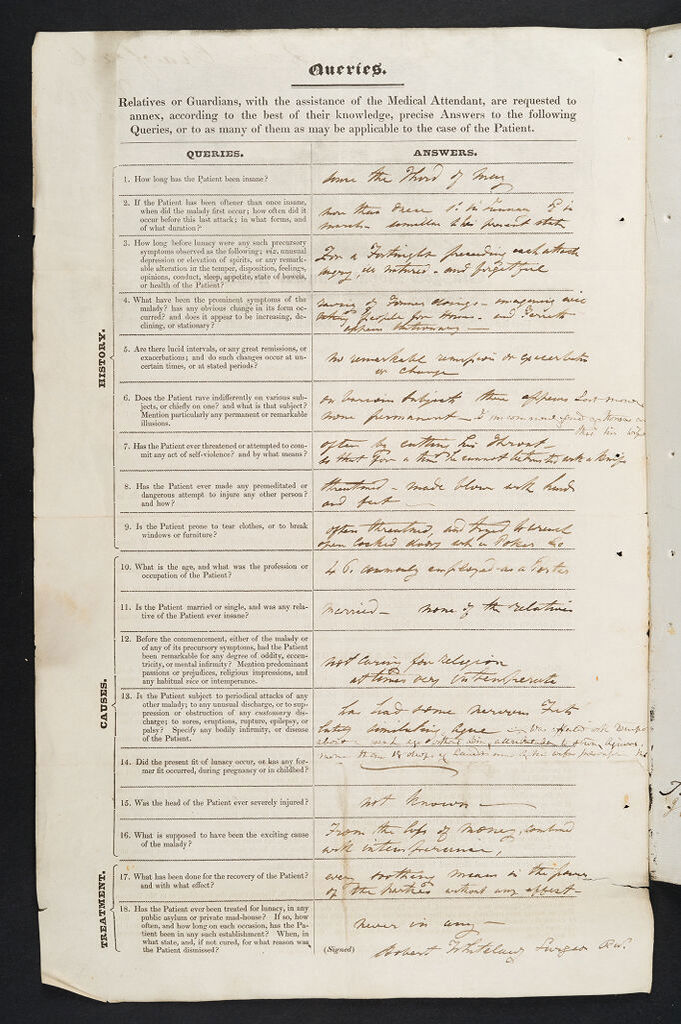 Queries.
Relatives or Guardians, with the assistance of the Medical Attendant, are requested to
annex, according to the best of their knowledge, precise Answers to the following
Queries, or to as many of them as may be applicable to the case of the Patient.
QUERIES.
ANSWERS.
HISTORY.
1. How long has the Patient been insane?
since the Third of May
2. If the Patient has been oftener than once insane,
when did the malady first occur; how often did it
occur before this last attack; in what forms, and
of what duration?
more than once
march similar to his present state
3. How long before lunacy were any such precursory
symptoms observed as the following; viz. unusual
depression or elevation of spirits, or any remark-
able alteration in the temper, disposition, feelings,
opinions, conduct, sleep, appetite, state of bowels,
or health of the Patient?
For a Fortnight preceeding each attack
angry, ill natured - and forgetful
4. What have been the prominent symptoms of the
malady? has any obvious change in its form oc-
curred? and does it appear to be increasing, de-
clining, or stationary?
raving of Former doings -
people for
appears stationary
5. Are there lucid intervals, or any great remissions, or
exacerbations; and do such changes occur at un-
certain times, or at stated periods?
no remarkable remission or exacerbation
or change
6. Does the Patient rave indifferently on various sub-
jects, or chiefly on one? and what is that subject?
Mention particularly any permanent or remarkable
illusions.
on various subjects there appears Lost money
more permanent
his wife
7. Has the Patient ever threatened or attempted to com-
mit any act of self-violence? and by what means?
often by cutting his Throat
so that For a time he cannot be trusted with a Knife
8. Has the Patient ever made any premeditated or
dangerous attempt to injure any other person?
and how?
threatened - made blows with hands
and feet
9. Is the Patient prone to tear clothes, or to break
windows or furniture?
often threatened, and tryed to wrench
open Locked doors with a Poker &c
CAUSES.
10. What is the age, and what was the profession or
occupation of the Patient?
46. commonly employed as a Porter
11. Is the Patient married or single, and was any rela-
tive of the Patient ever insane?
married - none of the relatives
12. Before the commencement, either of the malady or
of any of its precursory symptoms, had the Patient
been remarkable for any degree of oddity, eccen-
tricity, or mental infirmity? Mention predominant
passions or prejudices, religious impressions, and
any habitual vice or intemperance.
not caring for religion
at times very intemperate
13. Is the Patient subject to periodical attacks of any
other malady; to any unusual discharge, or to sup-
pression or obstruction of any customary dis-
charge; to sores, eruptions, rupture, epilepsy, or
palsy? Specify any bodily infirmity, or disease
of the Patient.
he had some nervous Fits
Lately simulating Ague
14. Did the present fit of lunacy occur, or has any for-
mer fit occurred, during pregnancy or in childbed?
15. Was the head of the Patient ever severely injured?
not known
16. What is supposed to have been the exciting cause
of the malady?
From the loss of money, combined
with intemperance,
TREATMENT.
17. What has been done for the recovery of the Patient?
and with what effect?
every soothing means in the power
of the parties without any effect -
18. Has the Patient ever been treated for lunacy, in any
public asylum or private mad-house? If so, how
often, and how long on each occasion, has the Pa-
tient been in any such establishment? When, in
what state, and, if not cured, for what reason was
the Patient dismissed?
never in any
(Signed) Robert Whitelaw Surgeon